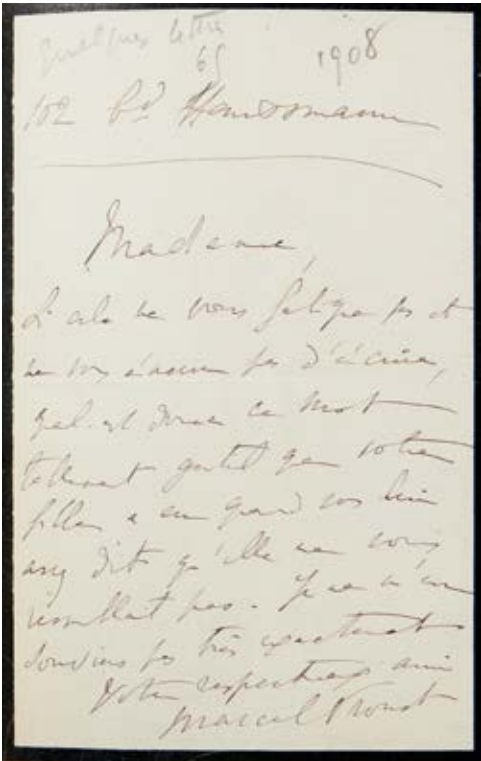 Quelques lettres
65 1908
102 Bd Haussmann
Madame,
Si cela ne vous fatigue pas et
ne vous ennuie pas d'écrire,
quel est donc ce mot
tellement gentil que votre
fille a eu quand vous lui
avez dit qu'elle ne vous
ressemblait pas. Je ne m'en
souviens pas très exactement
Votre respectueux ami
Marcel Proust